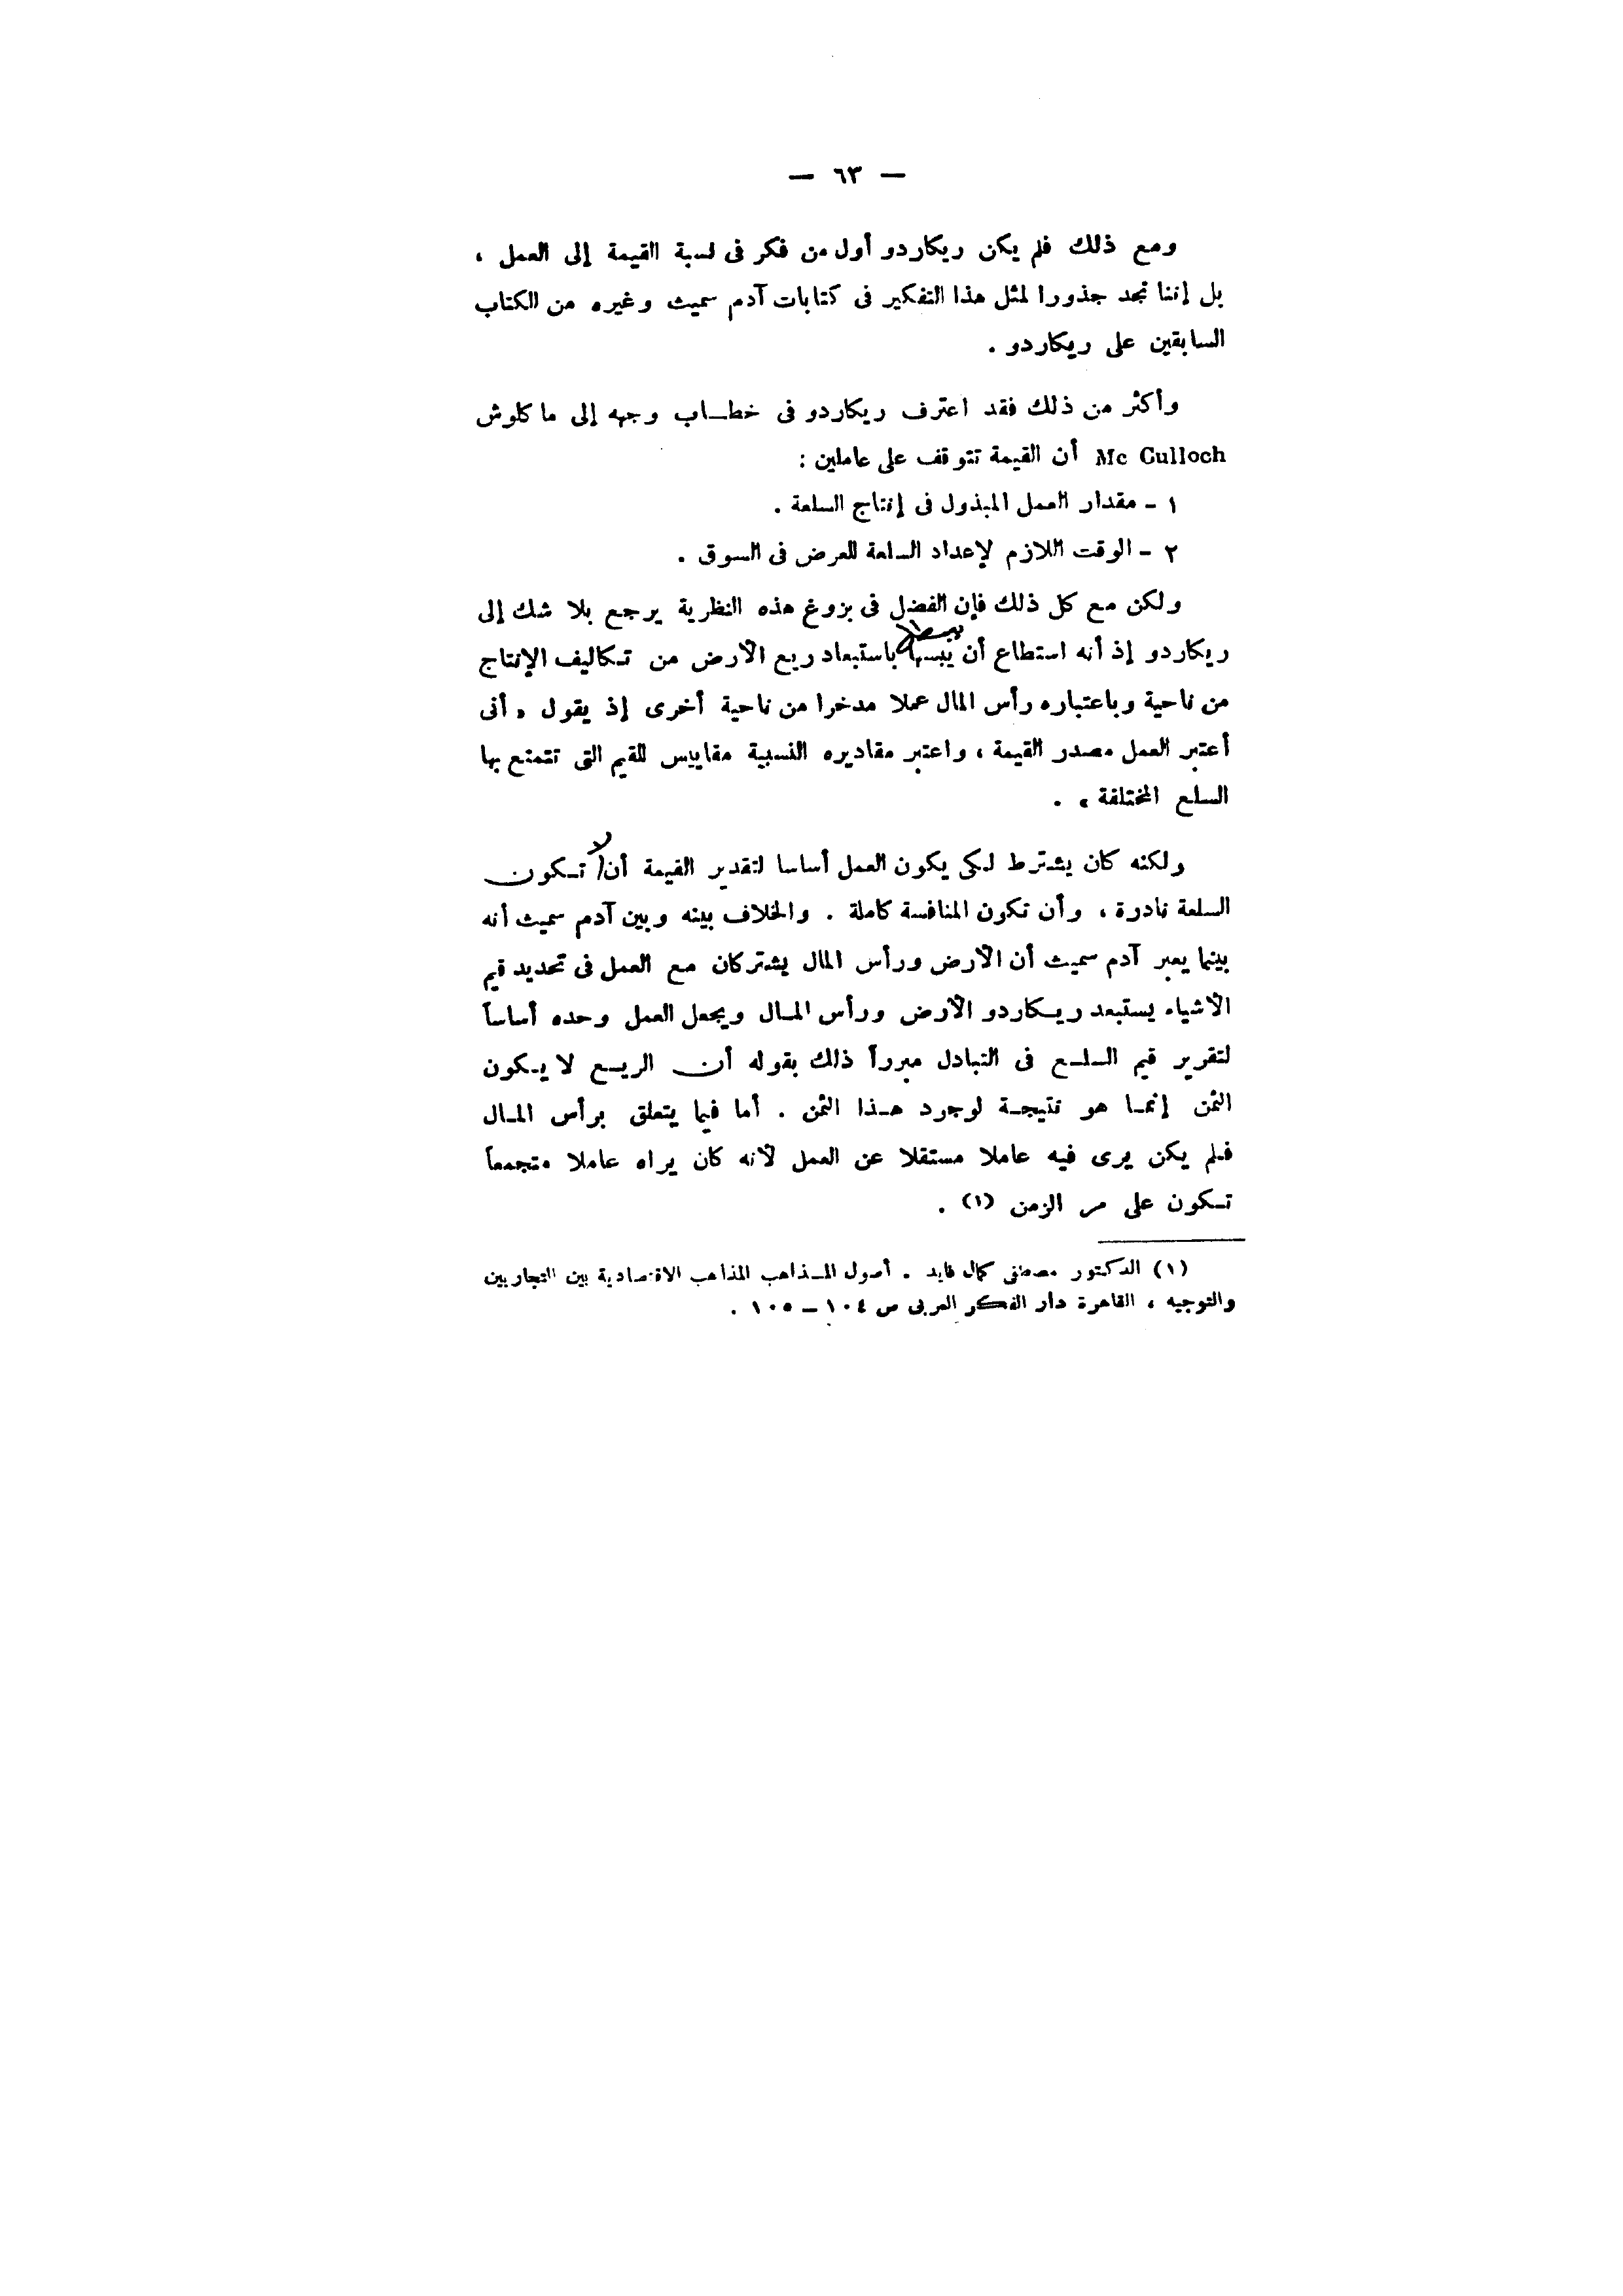 — ٦٣ —
ومع ذلك فلم يكن ريكاردو أول من فكر فى نسبة القيمة إلى العمل ،
بل إننا نجد جذورا لمثل هذا التفكير فى كتابات آدم سميث وغيره من الكتاب
السابقين على ريكاردو .
وأكثر من ذلك فقد اعترف ريكاردو فى خطاب وجهه إلى ماكلوش
Mc Culloch أن القيمة تتوقف على عاملين :
١ - مقدار العمل المبذول فى إنتاج السلعة .
٢ - الوقت اللازم لإعداد السلعة للعرض فى السوق .
ولكن مع كل ذلك فإن الفضل فى بزوغ هذه النظرية يرجع بلا شك إلى
يبسطها
ريكاردو إذ أنه استطاع أن باستبعاد ريع الأرض من تكاليف الإنتاج
من ناحية وباعتباره رأس المال عملا مدخرا من ناحية أخرى إذ يقول « أنى
أعتبر العمل مصدر القيمة ، واعتبر مقاديره النسبية مقاييس للقيم التى تتمتع بها
السلع المختلفة » .
ولكنه كان يشترط لكى يكون العمل أساسا لتقدير القيمة أن لا تكون
السلعة نادرة ، وأن تكون المنافسة كاملة . والخلاف بينه وبين آدم سميث أنه
بينما يعبر آدم سميث أن الأرض ورأس المال يشتركان مع العمل فى تحديد قيم
الأشياء يستبعد ريكاردو الأرض ورأس المال ويجعل العمل وحده أساساً
لتقرير قيم السلع فى التبادل مبرراً ذلك بقوله أن الريع لا يكون
الثمن إنما هو نتيجة لوجود هذا الثمن . أما فيما يتعلق برأس المال
فلم يكن يرى فيه عاملا مستقلا عن العمل لأنه كان يراه عاملا متجمعاً
تكون على مر الزمن (١) .
(١) الدكتور مصطفى كمال فايد . أصول المذاهب المذاهب الاقتصادية بين التجاريين
والتوجيه ، القاهرة دار الفكر العربى ص ١٠٤ – ١٠٥ .